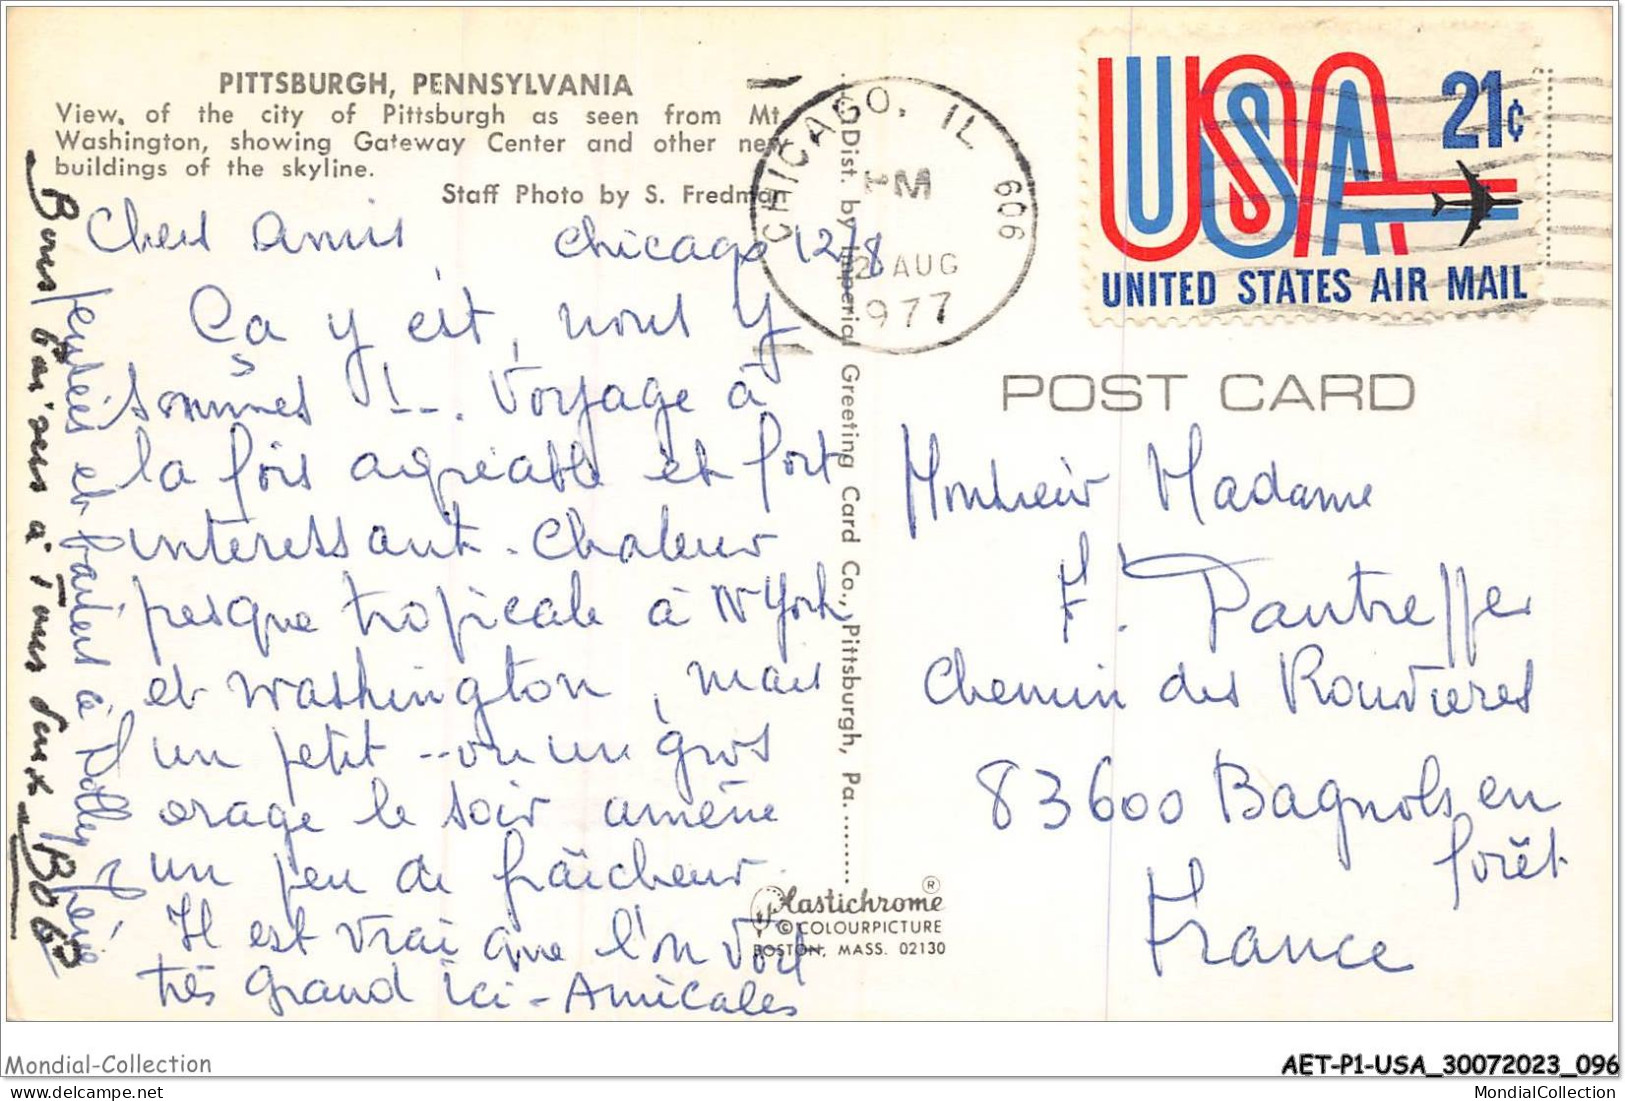 PITTSBURGH, PENNSYLVANIA
View of the city of Pittsburgh as seen from Mt.
Washington, showing Gateway Center and other new
buildings of the skyline.
Staff Photo by S. Fredman
Chers amis Chicago 12/8
Ça y est, nous y
sommes !... Voyage à
la fois agréable et fort
intéressant. Chaleur
presque tropicale à N York
et Washington, mais
un petit -- ou un gros
orage le soir amène
un peu de fraîcheur.
Il est vrai que l'on voit
très grand ici - Amicales
pensées et à Dolly
Bons baisers à Tous deux
Dist. by Imperial Greeting Card Co., Pittsburgh, Pa.
CHICAGO, IL 606
PM
12 AUG
1977
USA 21¢
UNITED STATES AIR MAIL
POST CARD
Monsieur Madame
F. Pautreffer
Chemin des Rouvieres
83600 Bagnols en
forêt
France
Plastichrome ®
© COLOURPICTURE
BOSTON, MASS. 02130
Mondial-Collection
AET-P1-USA_30072023_096
MondialCollection